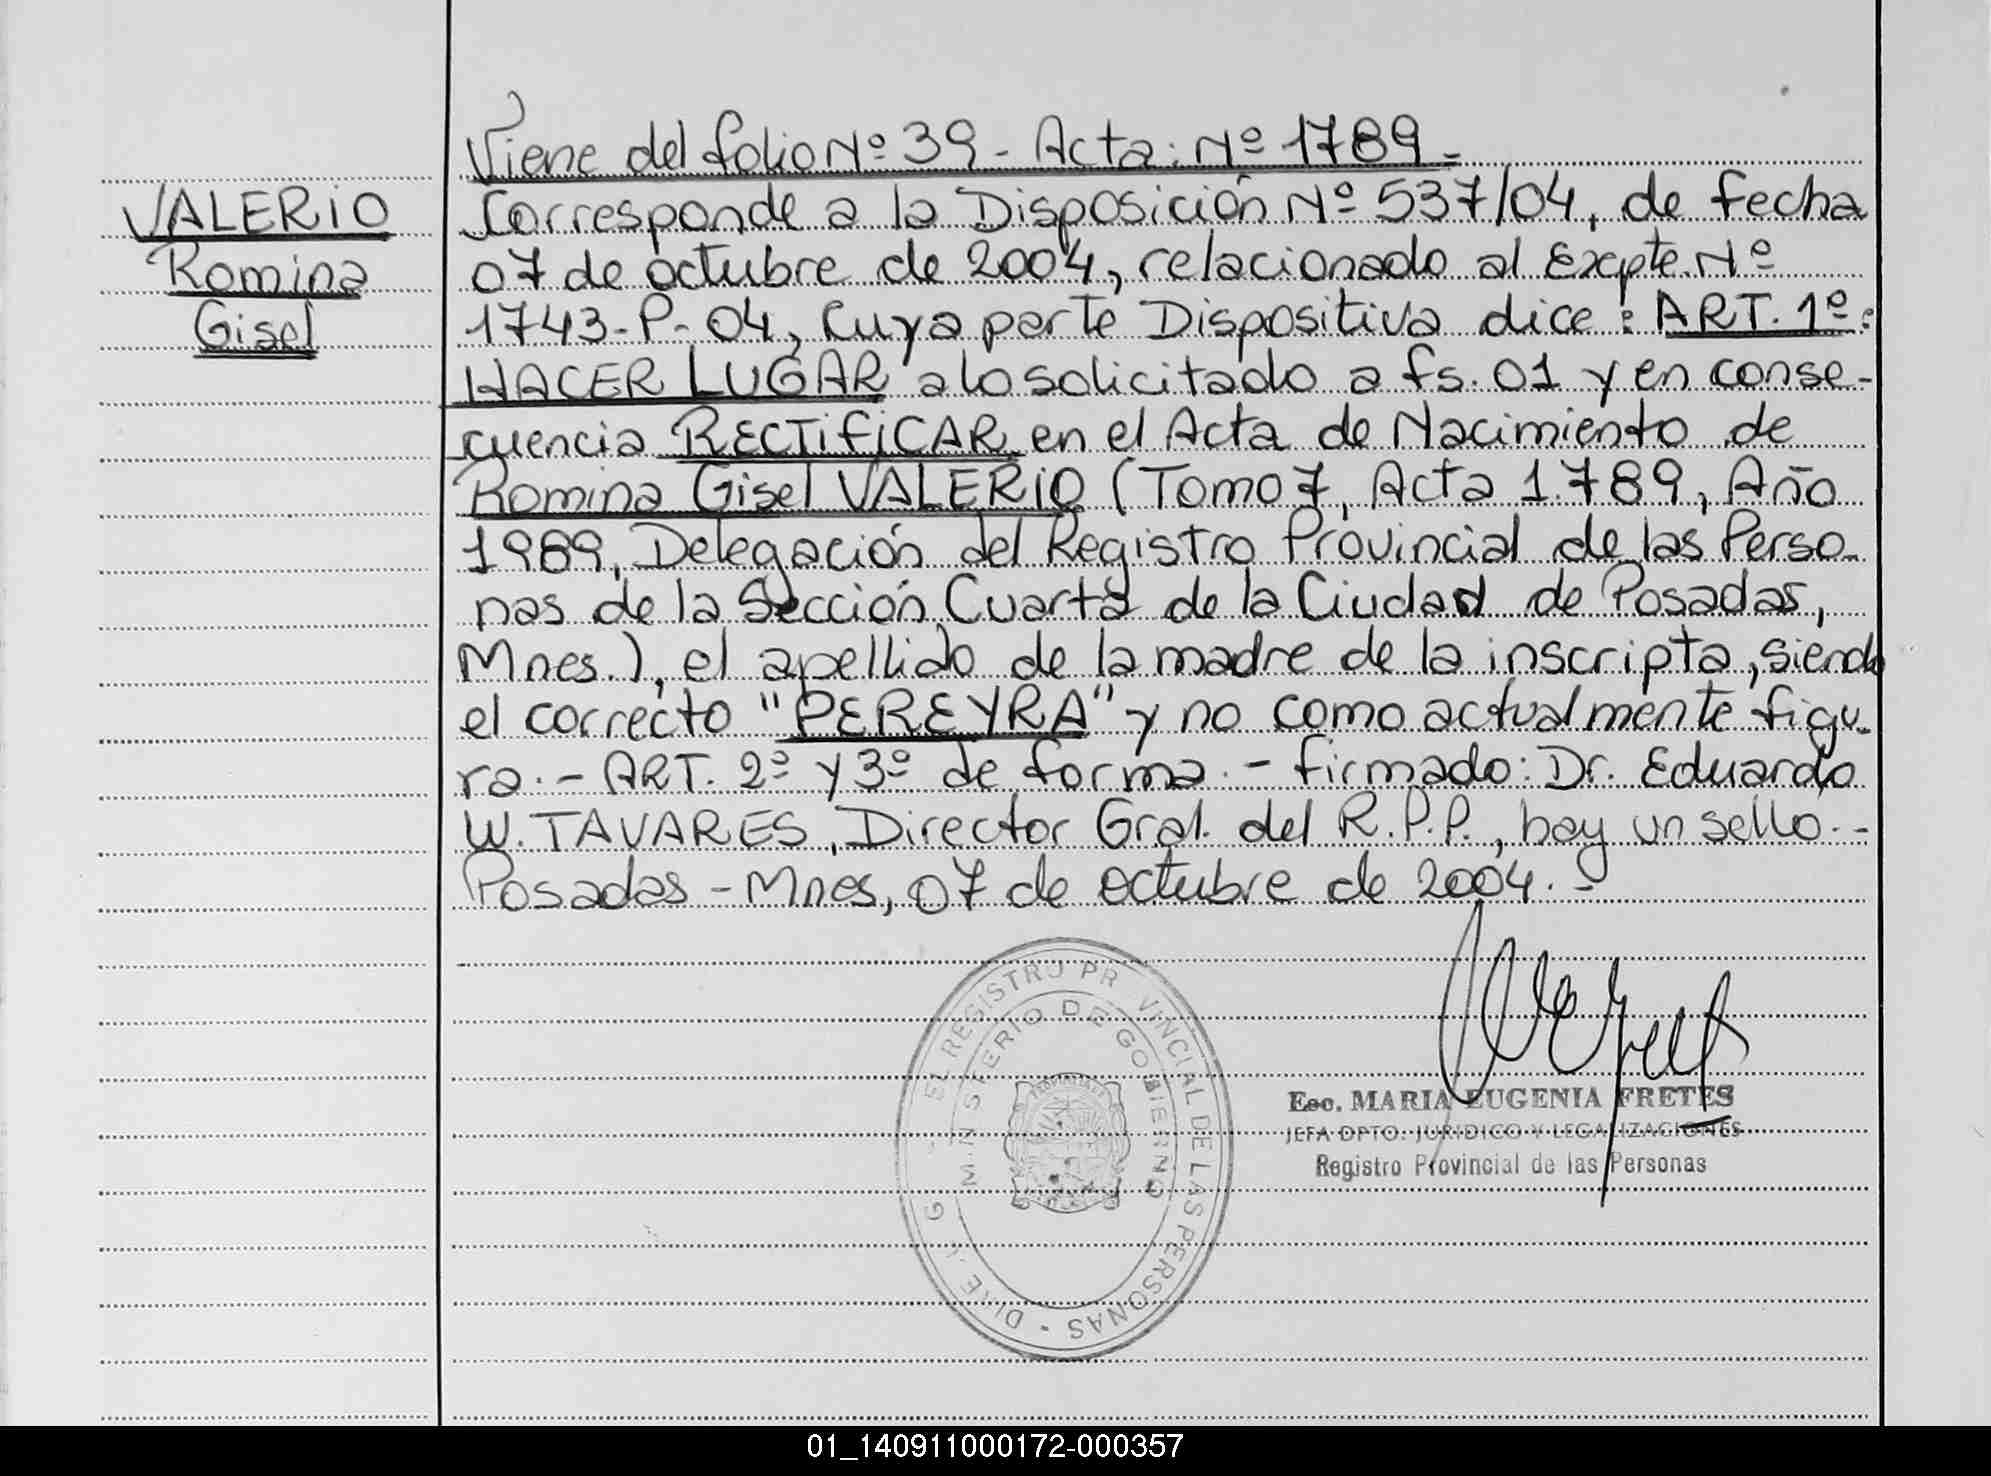 Viene del folio Nº 39 - Acta: Nº 1789 -
VALERIO
Romina
Gisel
Corresponde a la Disposición Nº 537/04, de fecha
07 de octubre de 2004, relacionado al Expte. Nº
1743-P-04, Cuya parte Dispositiva dice: ART. 1º:
HACER LUGAR a lo solicitado a fs. 01 y en conse-
cuencia RECTIFICAR en el Acta de Nacimiento de
Romina Gisel VALERIO (Tomo 7, Acta 1.789, Año
1989, Delegación del Registro Provincial de las Perso-
nas de la Sección Cuarta de la Ciudad de Posadas,
Mnes.), el apellido de la madre de la inscripta, siendo
el correcto "PEREYRA" y no como actualmente figu-
ra.- ART. 2º y 3º de forma.- firmado: Dr. Eduardo
W. TAVARES, Director Gral. del R.P.P., hay un sello.-
Posadas - Mnes, 07 de octubre de 2004.-
EL REGISTRO PR VINCIAL DE LAS PERSONAS - DIRE
MIN STERIO DE GOBIERNO
Esc. MARIA EUGENIA FRETES
JEFA DPTO. JURIDICO Y LEGALIZACIONES
Registro Provincial de las Personas
01_140911000172-000357